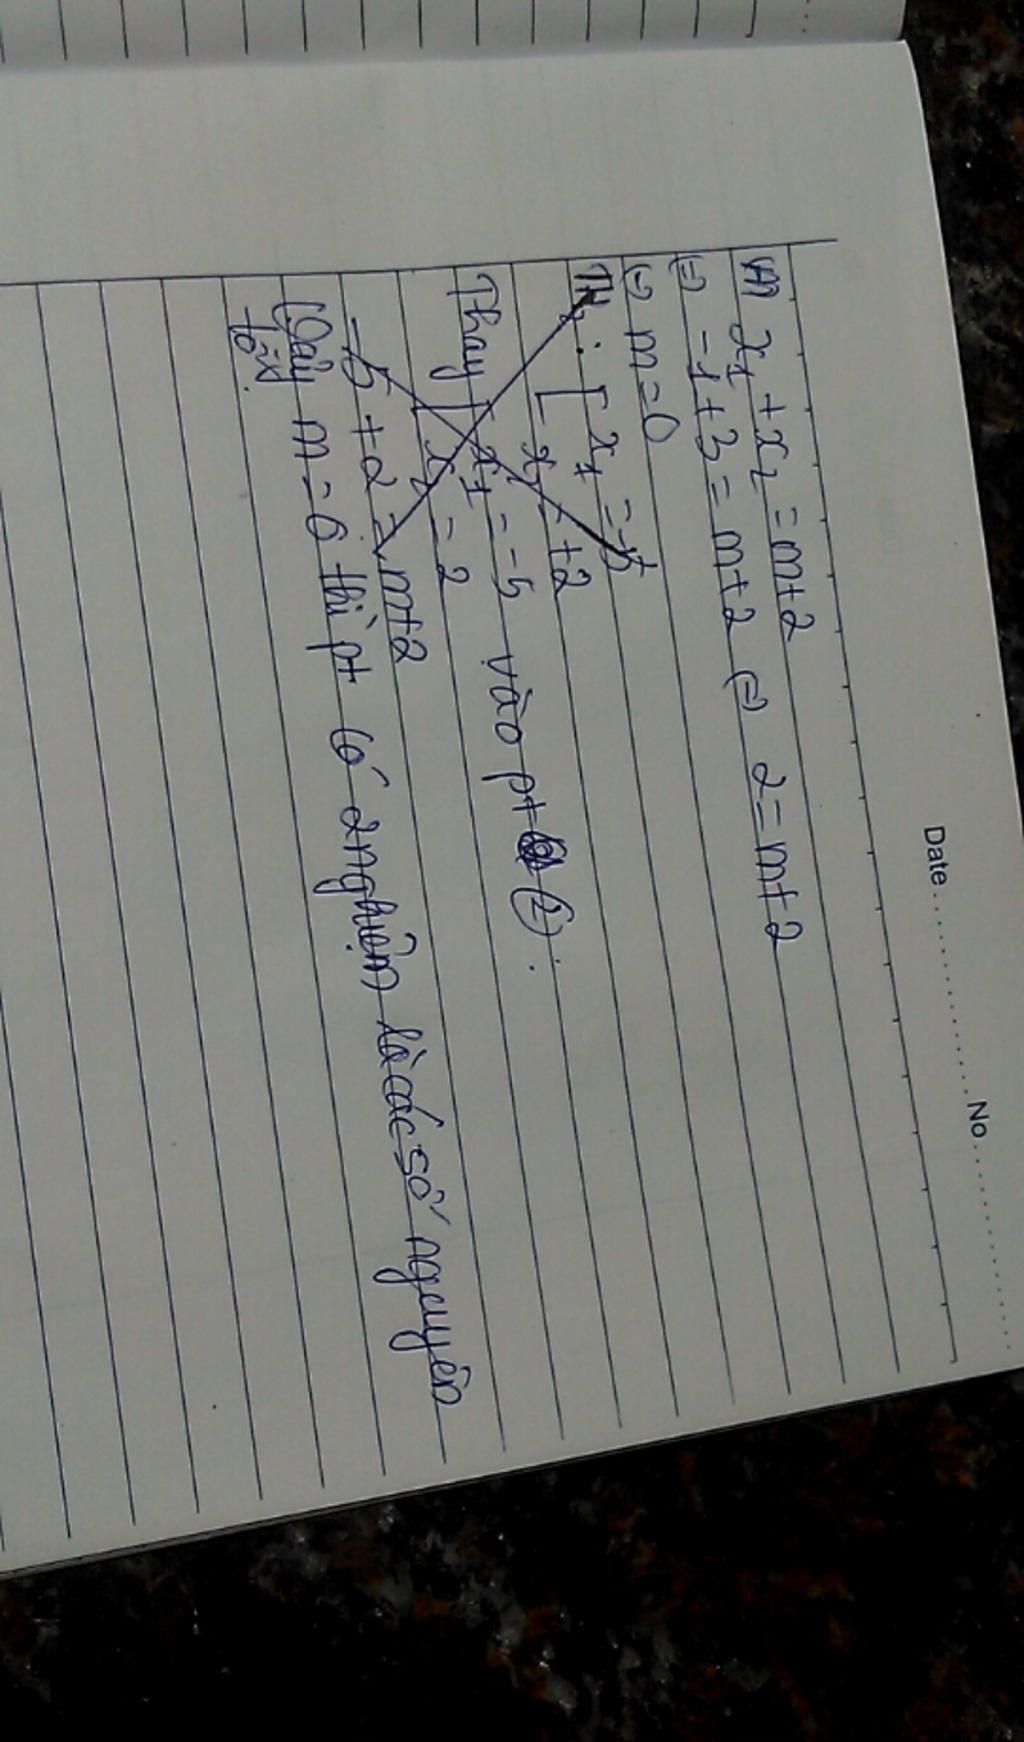 Date.......... No..........
x₁ + x₂ = m+2
(=) -1+3 = m+2 (=) 2 = m+2
(=) m = 0
TH₂: [ x₁ = -5
x₂ = +2
Thay [ x₁ = -5 vào pt (2):
x₂ = 2
-5 + 2 = m+2
Vậy m = 0 thì pt có 2 nghiệm là các số nguyên